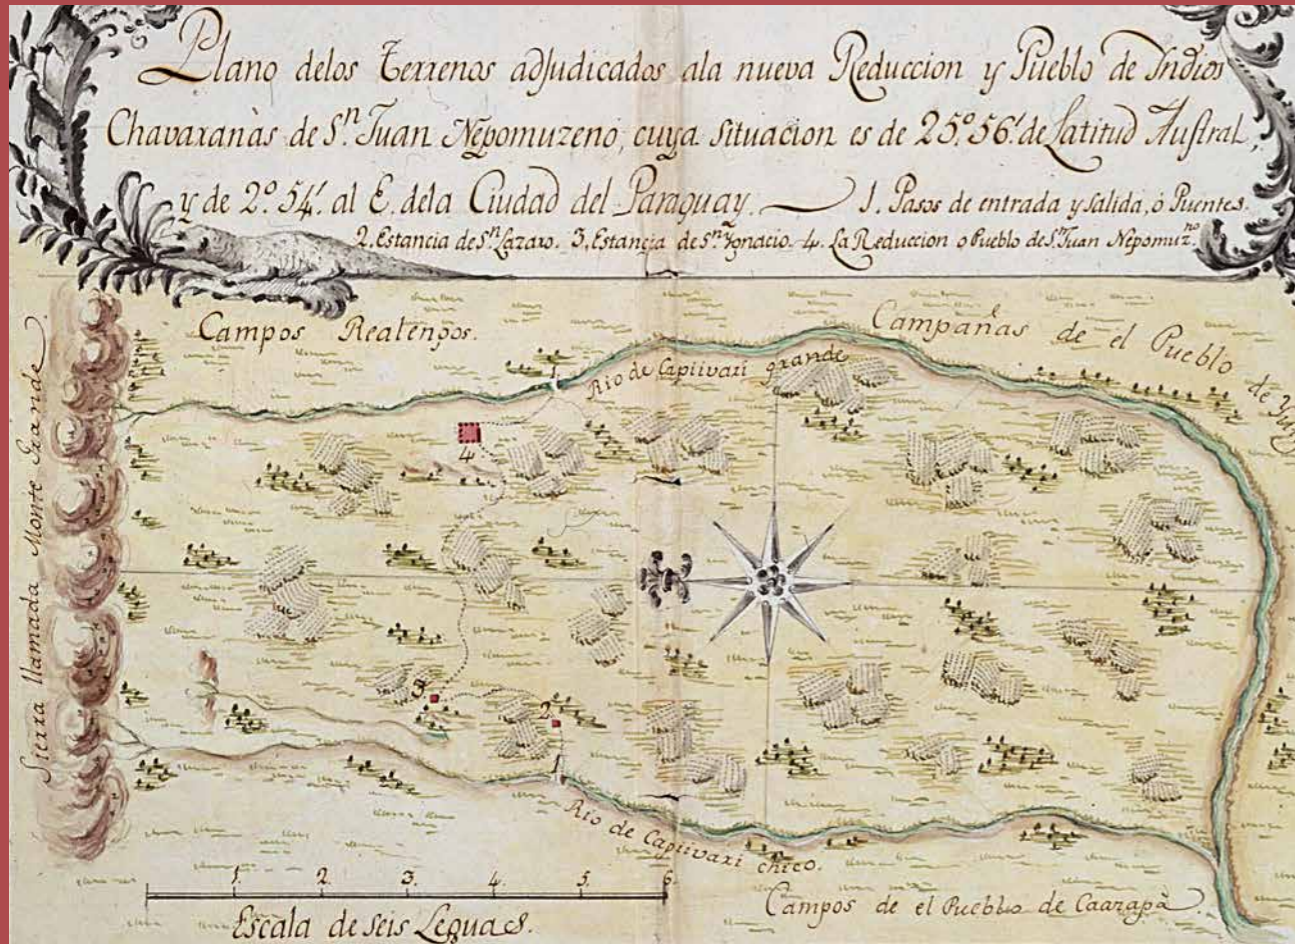 Plano delos Terrenos adjudicados ala nueva Reduccion y Pueblo de Indios
Chavaranàs de Sⁿ. Juan Nepomuzeno, cuya situacion es de 25.° 56.' de Latitud Austral,
y de 2.° 54.' al E. dela Ciudad del Paraguay. — 1. Pasos de entrada y salida, ò Puentes.
2. Estancia de Sⁿ. Lazaro. 3. Estancia de Sⁿ. Ygnacio. 4. La Reduccion o Pueblo de Sⁿ. Juan Nepomuzⁿᵒ.
Campos Realengos.
Campañas de el Pueblo de
Rio de Capiivari grande
1
4
Sierra llamada Monte Grande.
3.
2.
1
Rio de Capiivari chico.
1. 2. 3. 4. 5. 6.
Escala de seis Leguas.
Campos de el Pueblo de Caazapà